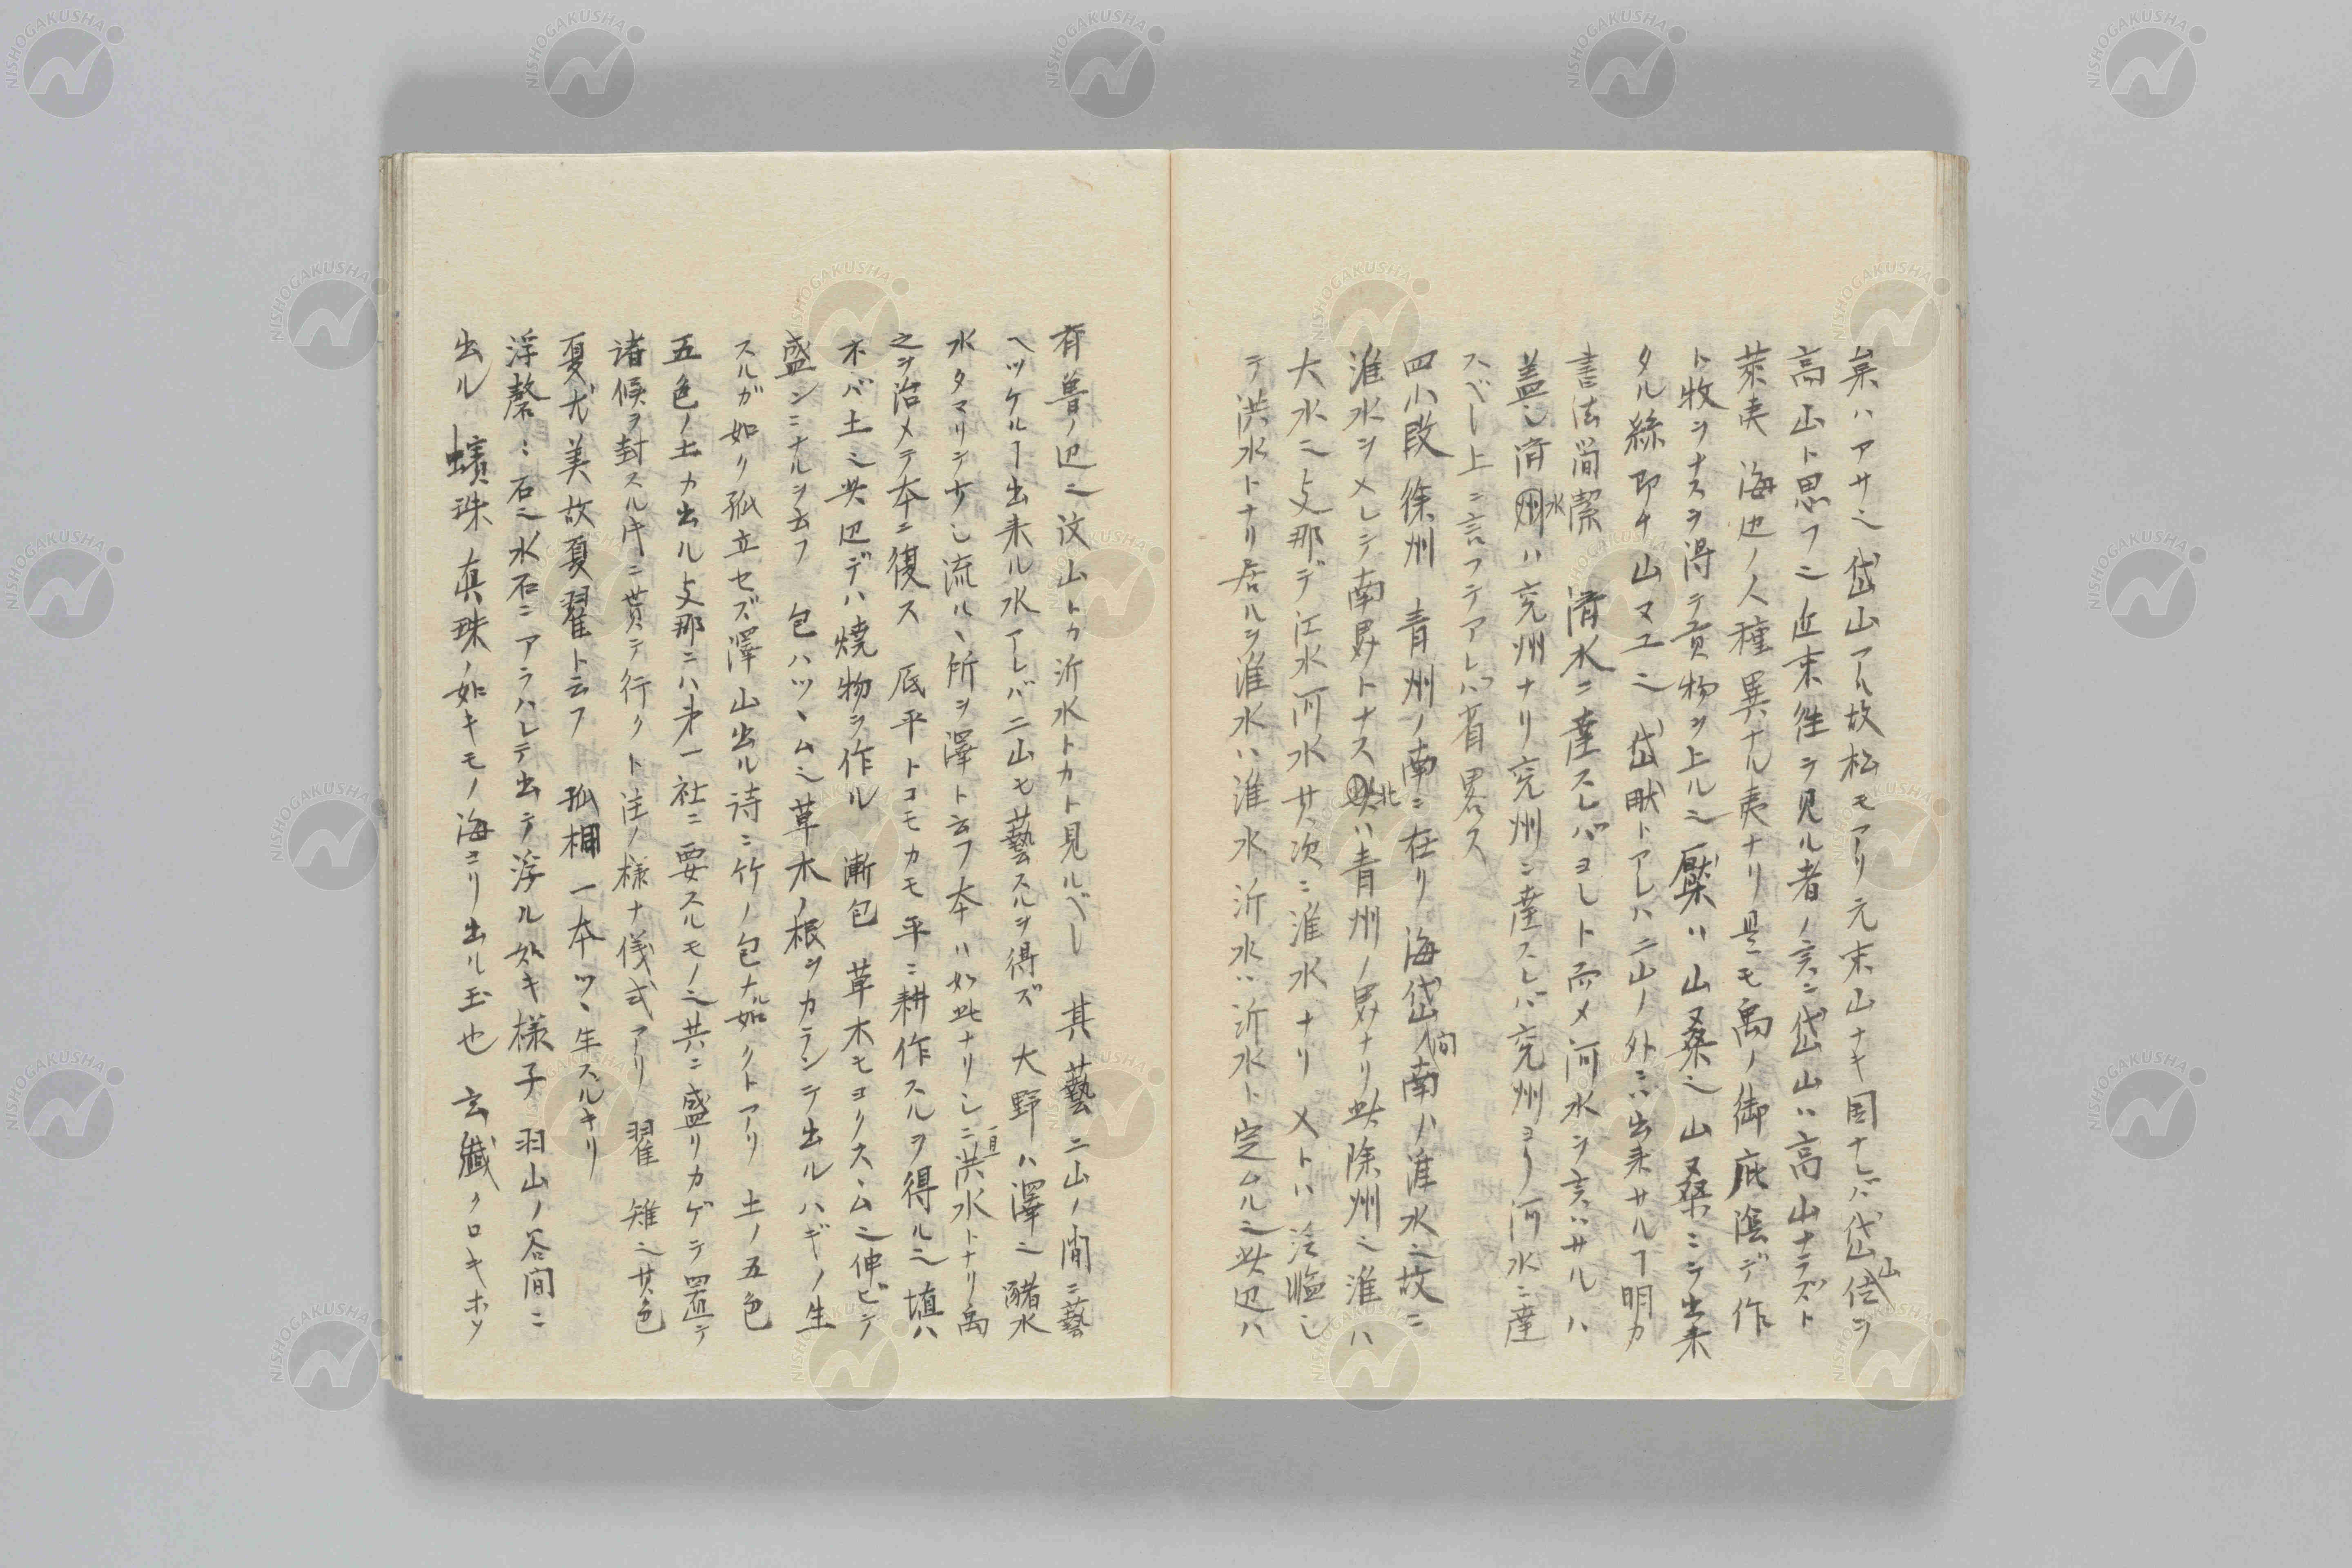 枲ハアサ也岱山アル故松モアリ元來山ナキ国ナレバ岱山位ヲ
高山ト思フ也近来往テ見ル者ノ言ニ岱山ハ高山ナラズト
萊夷 海辺ノ人種異ナル夷ナリ是モ禹ノ御庇陰デ作
ト牧ヲナスヲ得テ貢物ヲ上ル也檿ハ山桑也山桑ニテ出来
タル絲即チ山マユ也岱畎トアレハ二山ノ外ニハ出来サルヿ明カ
書法简潔 済水ニ達スレバヨレト而メ河水ヲ言ハサルハ
蓋シ済水ハ兗州ナリ兗州ニ達スレバ兗州ヨリ河水ニ達
スベレ上ニ言フテアレバ省畧ス
四小段 徐州 青州ノ南ニ在リ 海岱間南ハ淮水也故ニ
淮水ヲメレテ南界トナス北ハ青州ノ界ナリ此除州也淮ハ
大水也支那デ江水河水其次ニ淮水ナリ 乂トハ 泛濫シ
テ洪水トナリ居ルヲ淮水ハ淮水沂水ハ沂水ト定ムル也此辺ハ
有曽ノ辺也汶山トカ沂水トカト見ルベレ 其藝 二山ノ間ニ藝
ヘツケルヿ出来ル水アレバ二山モ藝スルヲ得ズ 大野ハ澤也豬水
水タマリ也少シ流ルヽ所ヲ澤ト云フ本ハ如此ナリレニ一旦洪水トナリ禹
之ヲ治メテ本ニ復ス 底平 トコモカモ平ニ耕作スルヲ得ル也 埴ハ
ネバ土也此辺デハ焼物ヲ作ル 漸包 草木モヨリスヽム也伸ビテ
盛ンニナルヲ云フ 包ハツヽム也草木ノ根ヲカランテ出ルハギノ生
スルガ如ク孤立セズ澤山出ル詩ニ竹ノ包ナル如クトアリ 土ノ五色
五色ノ土カ出ル支那ニハ才一社ニ要スルモノ也共ニ盛リカゲテ置テ
諸侯ヲ封スル片ニ貰テ行クト注ノ様ナ儀式アリ 翟 雉也其色
夏尤美故夏翟ト云フ 孤桐 一本ツヽ生スルキリ
浮磬ミ石也水石ニアラハレテ出テ浮ル如キ様子 羽山ノ谷間ニ
出ル 蠙珠 真珠ノ如キモノ海ヨリ出ル玉也 玄纖クロキホソ